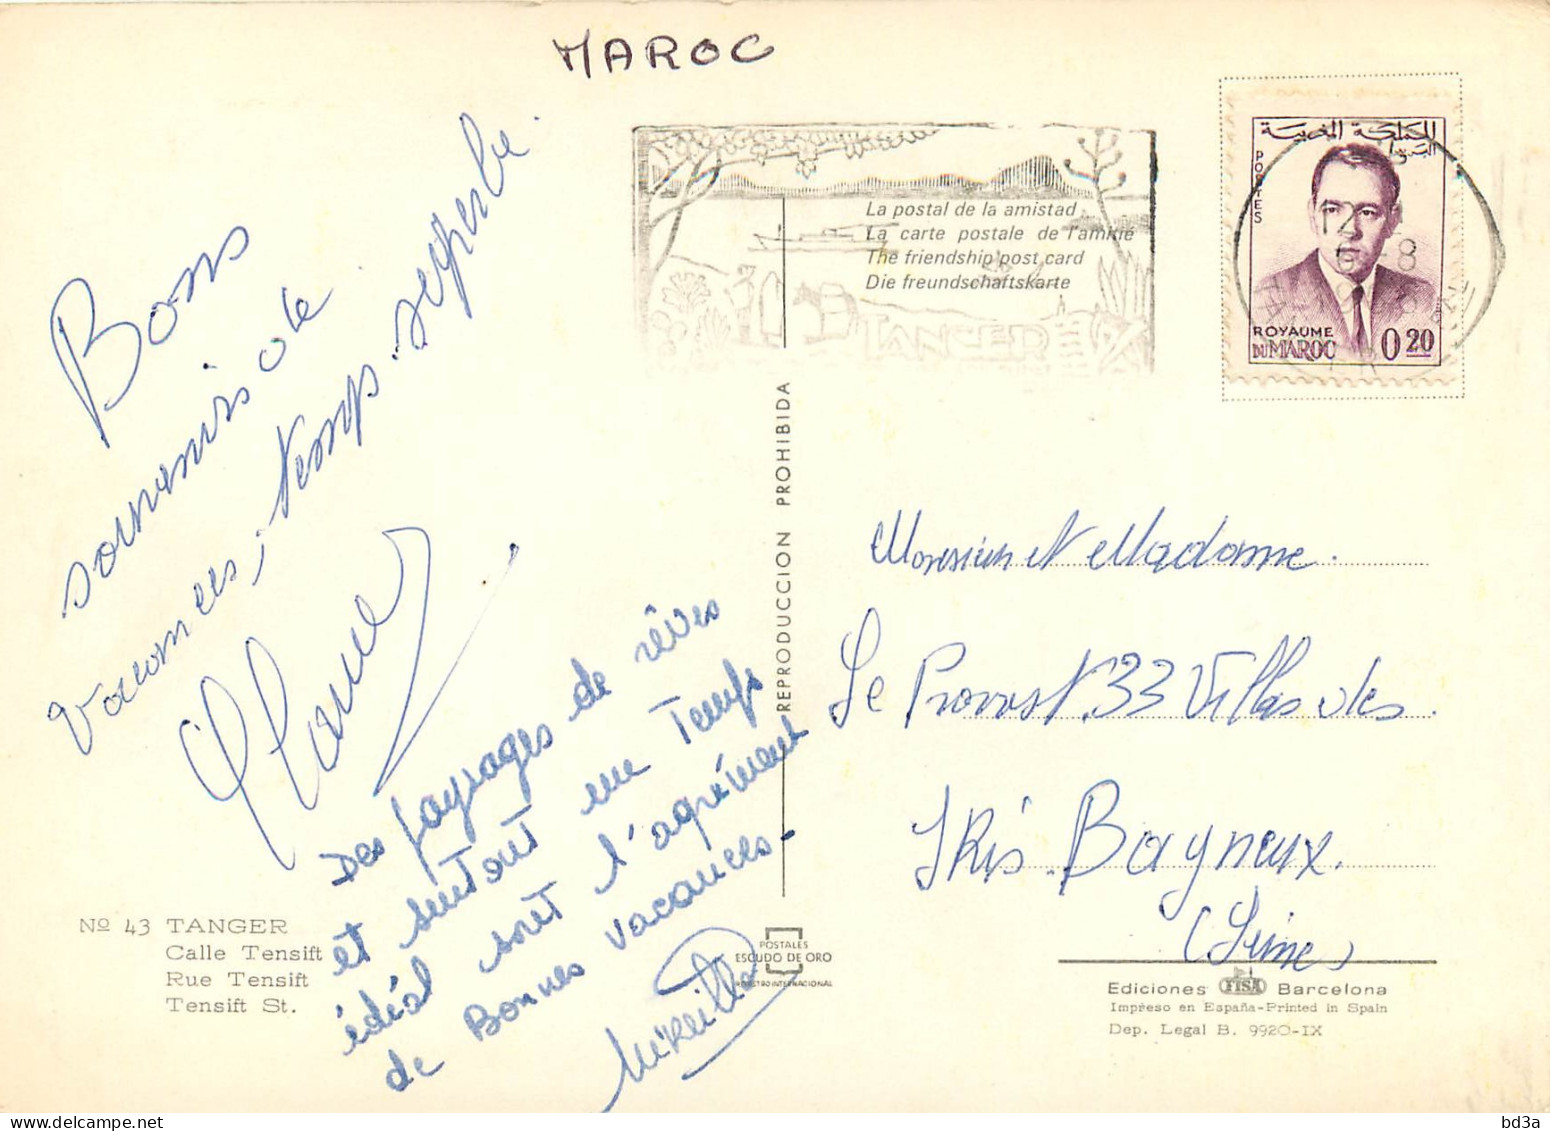 MAROC
Bons
souvenirs de
vacances, temps superbe.
Des paysages de rêves
et surtout un Temps
idéal sont l'agrément
de Bonnes vacances-
Mireille
La postal de la amistad
La carte postale de l'amitié
The friendship post card
Die freundschaftskarte
TANGER
المملكة المغربية
البريد
POSTES
ROYAUME
DU MAROC 0.20
12
6-8
REPRODUCCION PROHIBIDA
Monsieur et Madame.
Le Provost. 33 Villas des
IRis. Bagneux.
(Seine)
Nº 43 TANGER
Calle Tensift
Rue Tensift
Tensift St.
POSTALES
ESCUDO DE ORO
REGISTRO INTERNACIONAL
Ediciones FISA Barcelona
Impreso en España-Printed in Spain
Dep. Legal B. 9920-IX
bd3a